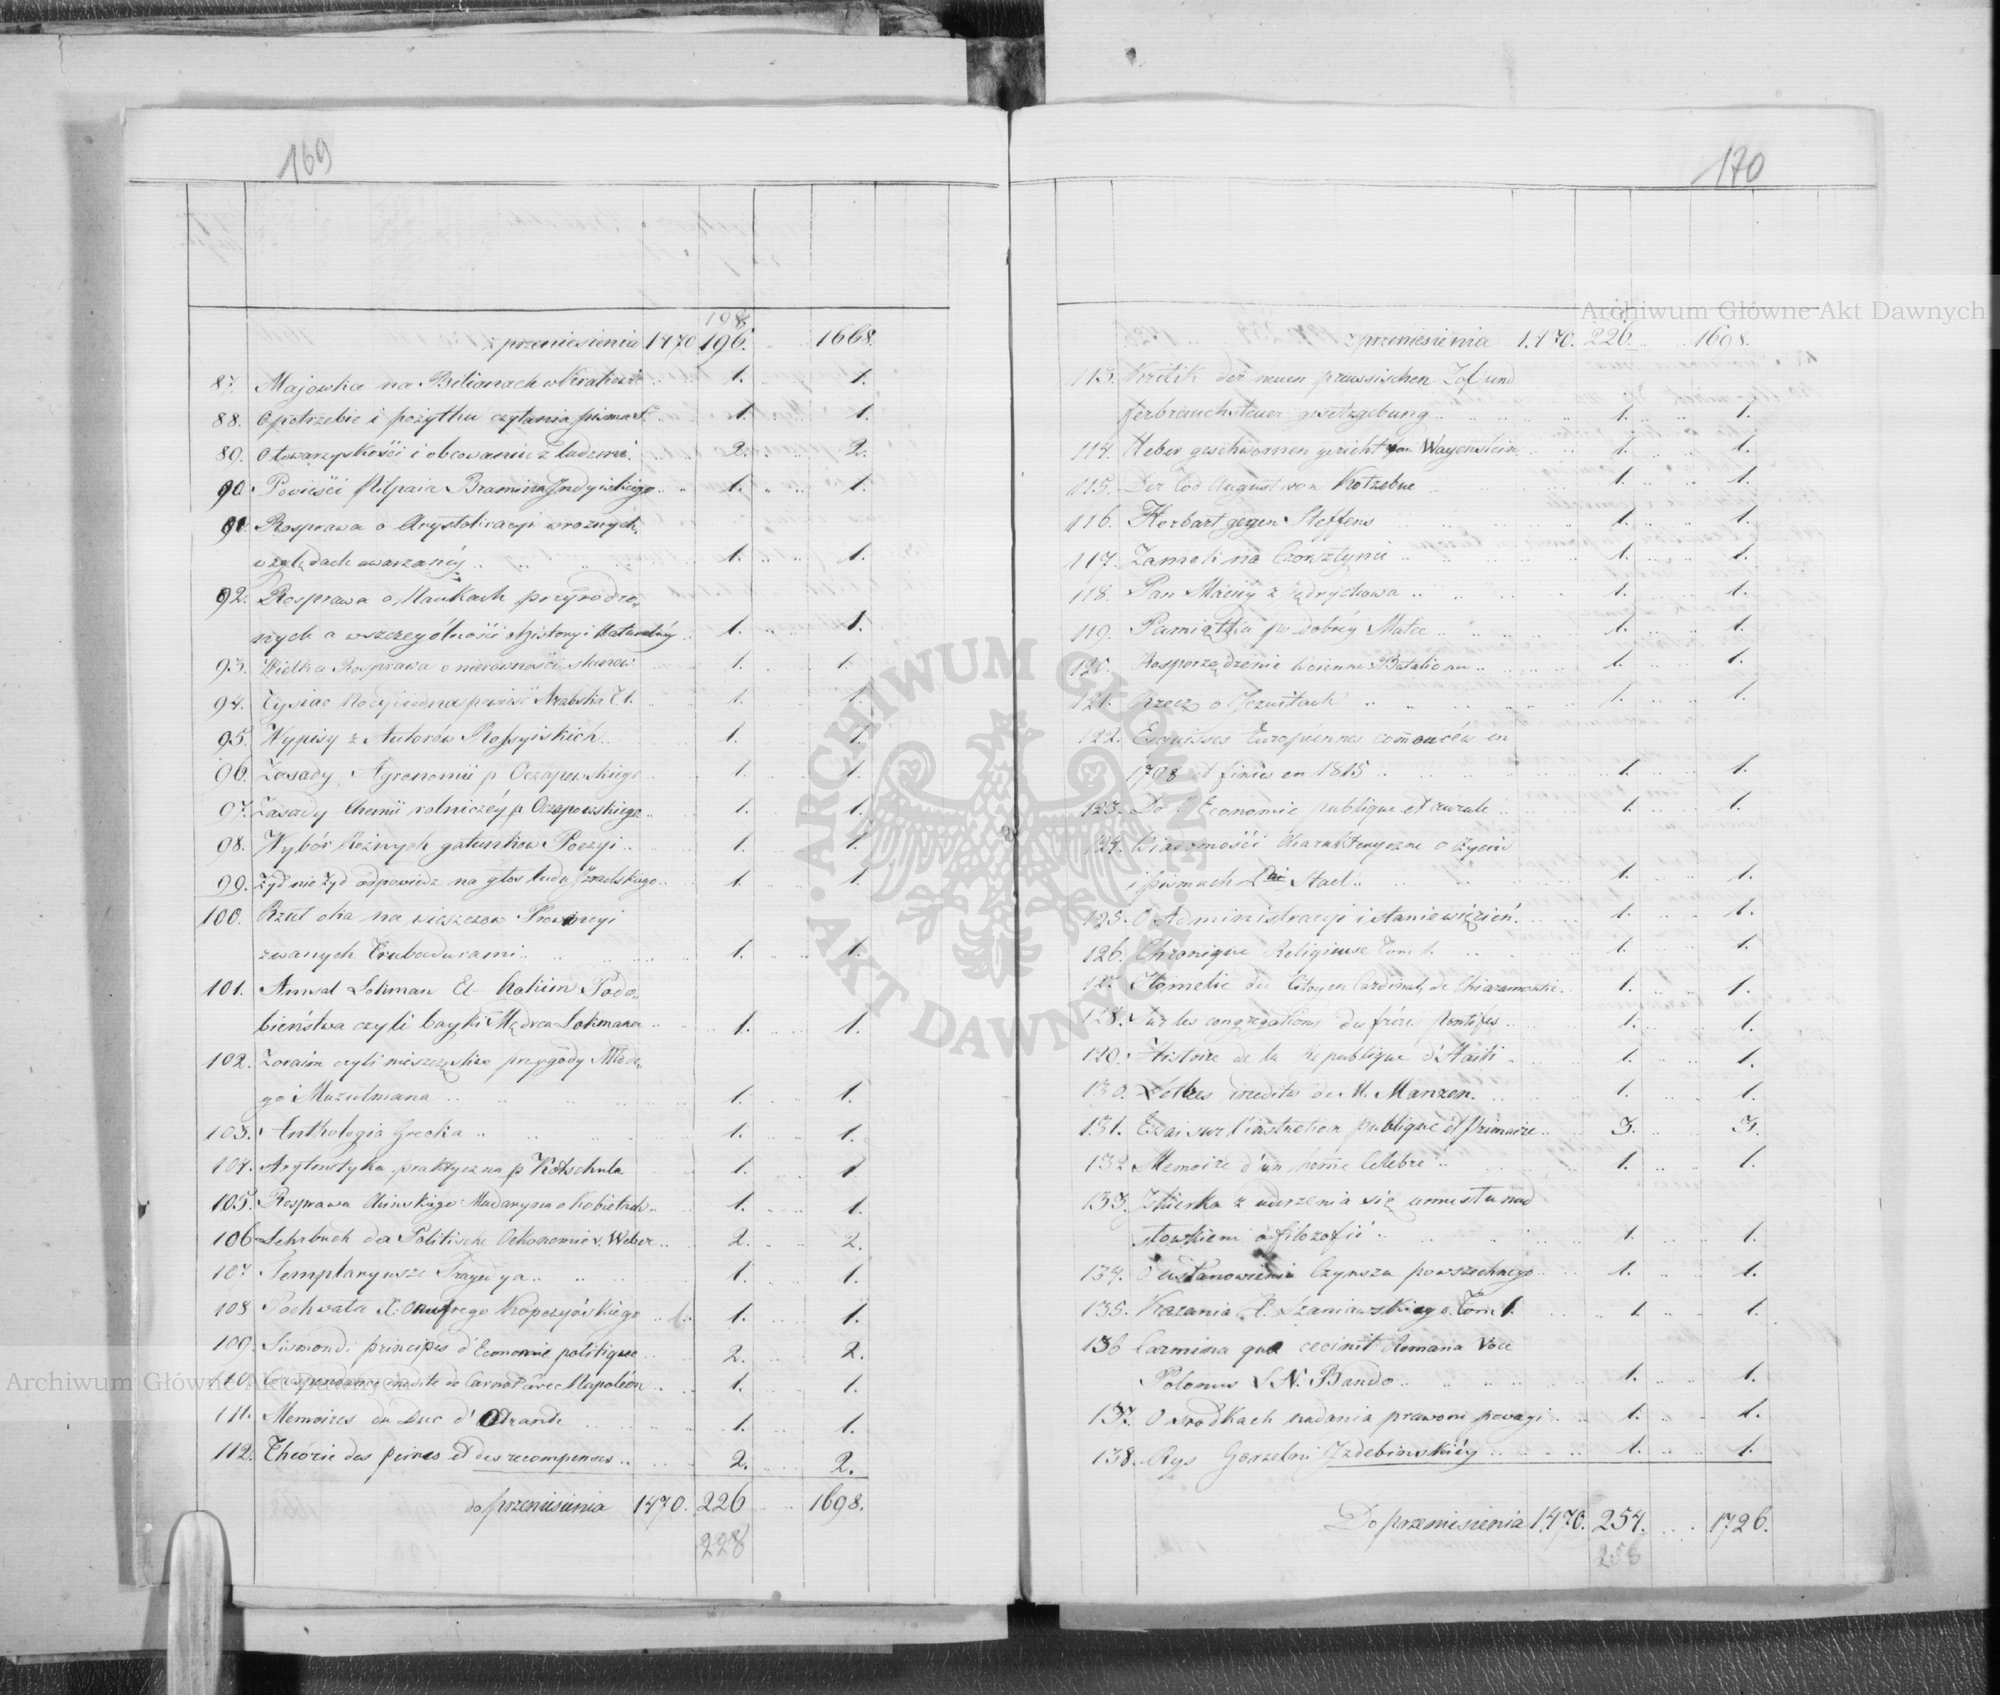 169
198
z przeniesienia 1470 196. 1668.
87. Majowka na Bilianach w 1. 1.
88. O potrzebie i pożytku czytania pisma S. 1. 1.
89. O towarzyskości i obcowaniu z ludzmi. 2. 2.
90. Powieści Pilpaia Bramina Indyiskiego 1. 1.
91. Rosprawa o Arystokracyi w roznych
względach uwarzanéy 1. 1.
92. Rosprawa o Naukach przyrodzo-
nych a wszczególności o historyi Naturalnéy 1. 1.
93. Wielka Rosprawa o nierowności stanow 1. 1.
94. Tysiac Nocy i iedna powieść Arabska T. 1. 1. 1.
95. Wypisy z Autorow Rossyiskich 1. 1.
96. Zasady Agronomii p Oczapowskiego 1. 1.
97. Zasady Chemii rolniczéy p Oczapowskiego 1. 1.
98. Wybór Rożnych gatunkow Poezyi 1. 1.
99. Żyd nie Żyd odpowiedz na głos ludu Izraelskiego 1. 1.
100. Rzut oka na wieszczow Prowancyi
zwanych Trubadurami 1. 1.
101. Amsal Lokman El- Hakim Podo-
bieństwa czyli bayki Mędrca Lokmana 1. 1.
102. Zoraim czyli nieszczęśliwe przygody Młode-
go Muzulmana 1. 1.
103. Anthologia Grecka 1. 1.
104. Arytmetyka praktyczna p Kotschula 1. 1.
105. Rosprawa Chinskiego Madaryna o Kobietach 1. 1.
106. Lehrbuch der Politische Oekonomie v. Weber 2. 2.
107. Templaryusze Tragedya 1. 1.
108. Pochwała X. Onufrego Kopczyńskiego 1. 1.
109. Sismondi principes d'Economie politique 2. 2.
110. Corespondence inedite de Carnot avec Napoléon 1. 1.
111. Memoires du Duc d' Otrante 1. 1.
112. Théorie des peines et des recompenses 2. 2.
do przeniesienia 1470. 226 1698.
228
170
z przeniesienia 1.470. 226. 1698.
113. Kritik der neuen preussischen Zol und
ferbrauchsteuer gesetzgebung 1. 1.
114. Ueber geschwornen gericht von Wayenstein 1. 1.
115. Der Tod August von Kotzebue 1. 1.
116. Herbart gegen Steffens 1. 1.
117. Zamek na Czorsztynie 1. 1.
118. Pan Maciéy z Jędrychowa 1. 1.
119. Pamiątka po dobréy Matce 1. 1.
120. Rosporządzenie Woienne Batalionu 1. 1.
121. Rzecz o Jezuitach 1. 1.
122. Esquisses Européennes comencées en
1798 et finies en 1815 1. 1.
123. De l'Economie publique et rurale 1. 1.
124. Wiadomości Charakteryczne o życiu
i pismach Stael 1. 1.
125. O Administracyi i stanie więzień. 1. 1.
126. Chronique Religieuse Tom 1. 1. 1.
127. Homelie du Citoyen Cardinal, de Chiaramontie 1. 1.
128. Sur les congregations des fréres Pontifes 1. 1.
129. Histoire de la Republique d'Haiti 1. 1.
130. Lettres inedites de M. Manzon. 1. 1.
131. Essai sur l'instrution publique et primaire 3. 3.
132. Memoire d'un home Celebre 1. 1.
133. Iskierka z uderzenia się umysłu nad
słowkiem o filozofii 1. 1.
134. O ustanowieniu Czynszu powszechnego 1. 1.
135. Kazania X. Szaniawskiego. Tom 1. 1. 1.
136 Carmina quae cecinit Romana Voce
Polonus S N. Bando 1. 1.
137. O srodkach nadania prawom powagi 1. 1.
138. Rys Gorzelni Izdebinskiéy 1. 1.
Do przeniesienia 1,470. 254. 1,726.
256
Archiwum Główne Akt Dawnych
Archiwum Główne Akt Dawnych
ARCHIWUM GŁÓWNE AKT DAWNYCH